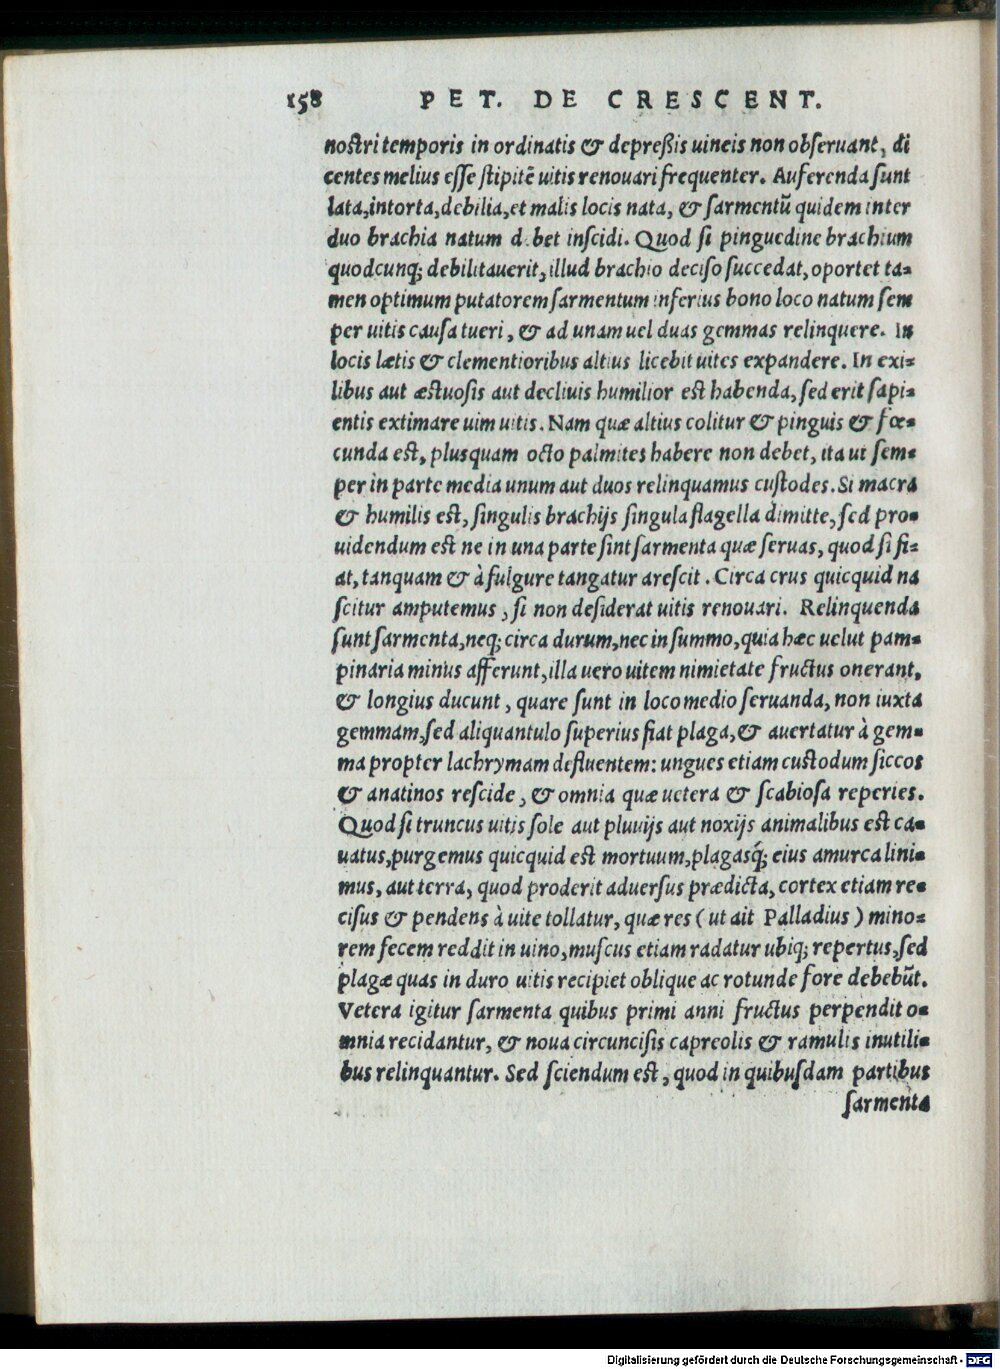 158 PET. DE CRESCENT.
nostri temporis in ordinatis & depreßis uineis non obseruant, di
centes melius esse stipitē uitis renouari frequenter. Auferenda sunt
lata, intorta, debilia, et malis locis nata, & sarmentū quidem inter
duo brachia natum d bet inscidi. Quod si pinguedine brachium
quodcunq; debilitauerit, illud brachio deciso succedat, oportet ta=
men optimum putatorem sarmentum inferius bono loco natum sem
per uitis causa tueri, & ad unam uel duas gemmas relinquere. In
locis lætis & clementioribus altius licebit uites expandere. In exi=
libus aut æstuosis aut decliuis humilior est habenda, sed erit sapi=
entis extimare uim uitis. Nam quæ altius colitur & pinguis & fœ=
cunda est, plusquam octo palmites habere non debet, ita ut sem=
per in parte media unum aut duos relinquamus custodes. Si macra
& humilis est, singulis brachijs singula flagella dimitte, sed pro=
uidendum est ne in una parte sint sarmenta quæ seruas, quod si fi=
at, tanquam & à fulgure tangatur arescit. Circa crus quicquid na
scitur amputemus, si non desiderat uitis renouari. Relinquenda
sunt sarmenta, neq; circa durum, nec in summo, quia hæc uelut pam=
pinaria minus afferunt, illa uero uitem nimietate fructus onerant,
& longius ducunt, quare sunt in loco medio seruanda, non iuxta
gemmam, sed aliquantulo superius fiat plaga, & auertatur à gem=
ma propter lachrymam defluentem: ungues etiam custodum siccos
& anatinos rescide, & omnia quæ uetera & scabiosa reperies.
Quod si truncus uitis sole aut pluuijs aut noxijs animalibus est ca=
uatus, purgemus quicquid est mortuum, plagasq́; eius amurca lini=
mus, aut terra, quod proderit aduersus prædicta, cortex etiam re=
cisus & pendens à uite tollatur, quæ res (ut ait Palladius) mino=
rem fecem reddit in uino, muscus etiam radatur ubiq; repertus, sed
plagæ quas in duro uitis recipiet oblique ac rotunde fore debebūt.
Vetera igitur sarmenta quibus primi anni fructus perpendit o=
mnia recidantur, & noua circuncisis capreolis & ramulis inutili=
bus relinquantur. Sed sciendum est, quod in quibusdam partibus
sarmenta
Digitalisierung gefördert durch die Deutsche Forschungsgemeinschaft - DFG